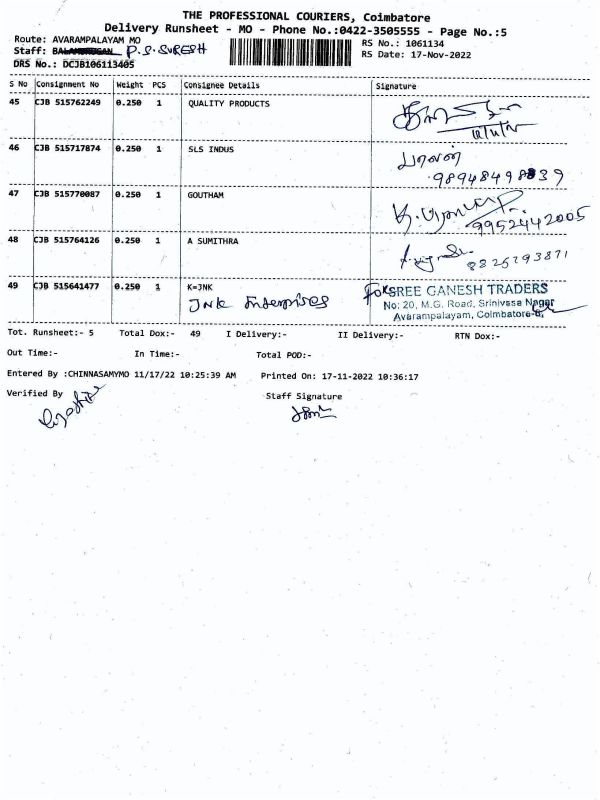 THE PROFESSIONAL COURIERS, Coimbatore
Delivery Runsheet - MO - Phone No.:0422-3505555 - Page No.:5
Route: AVARAMPALAYAM MO
RS No.: 1061134
Staff: P.S.SURESH
RS Date: 17-Nov-2022
DRS No.: DCJB106113405
S No Consignment No Weight PCS Consignee Details Signature
45 CJB 515762249 0.250 1 QUALITY PRODUCTS
46 CJB 515717874 0.250 1 SLS INDUS
47 CJB 515770087 0.250 1 GOUTHAM
9952442005
48 CJB 515764126 0.250 1 A SUMITHRA
49 CJB 515641477 0.250 1 K=JNK
JNK Enterprises
For SREE GANESH TRADERS
No: 20, M.G. Road, Srinivasa Nagar
Avarampalayam, Coimbatore-6.
Tot. Runsheet:- 5 Total Dox:- 49 I Delivery:- II Delivery:- RTN Dox:-
Out Time:- In Time:- Total POD:-
Entered By :CHINNASAMYMO 11/17/22 10:25:39 AM Printed On: 17-11-2022 10:36:17
Verified By Staff Signature